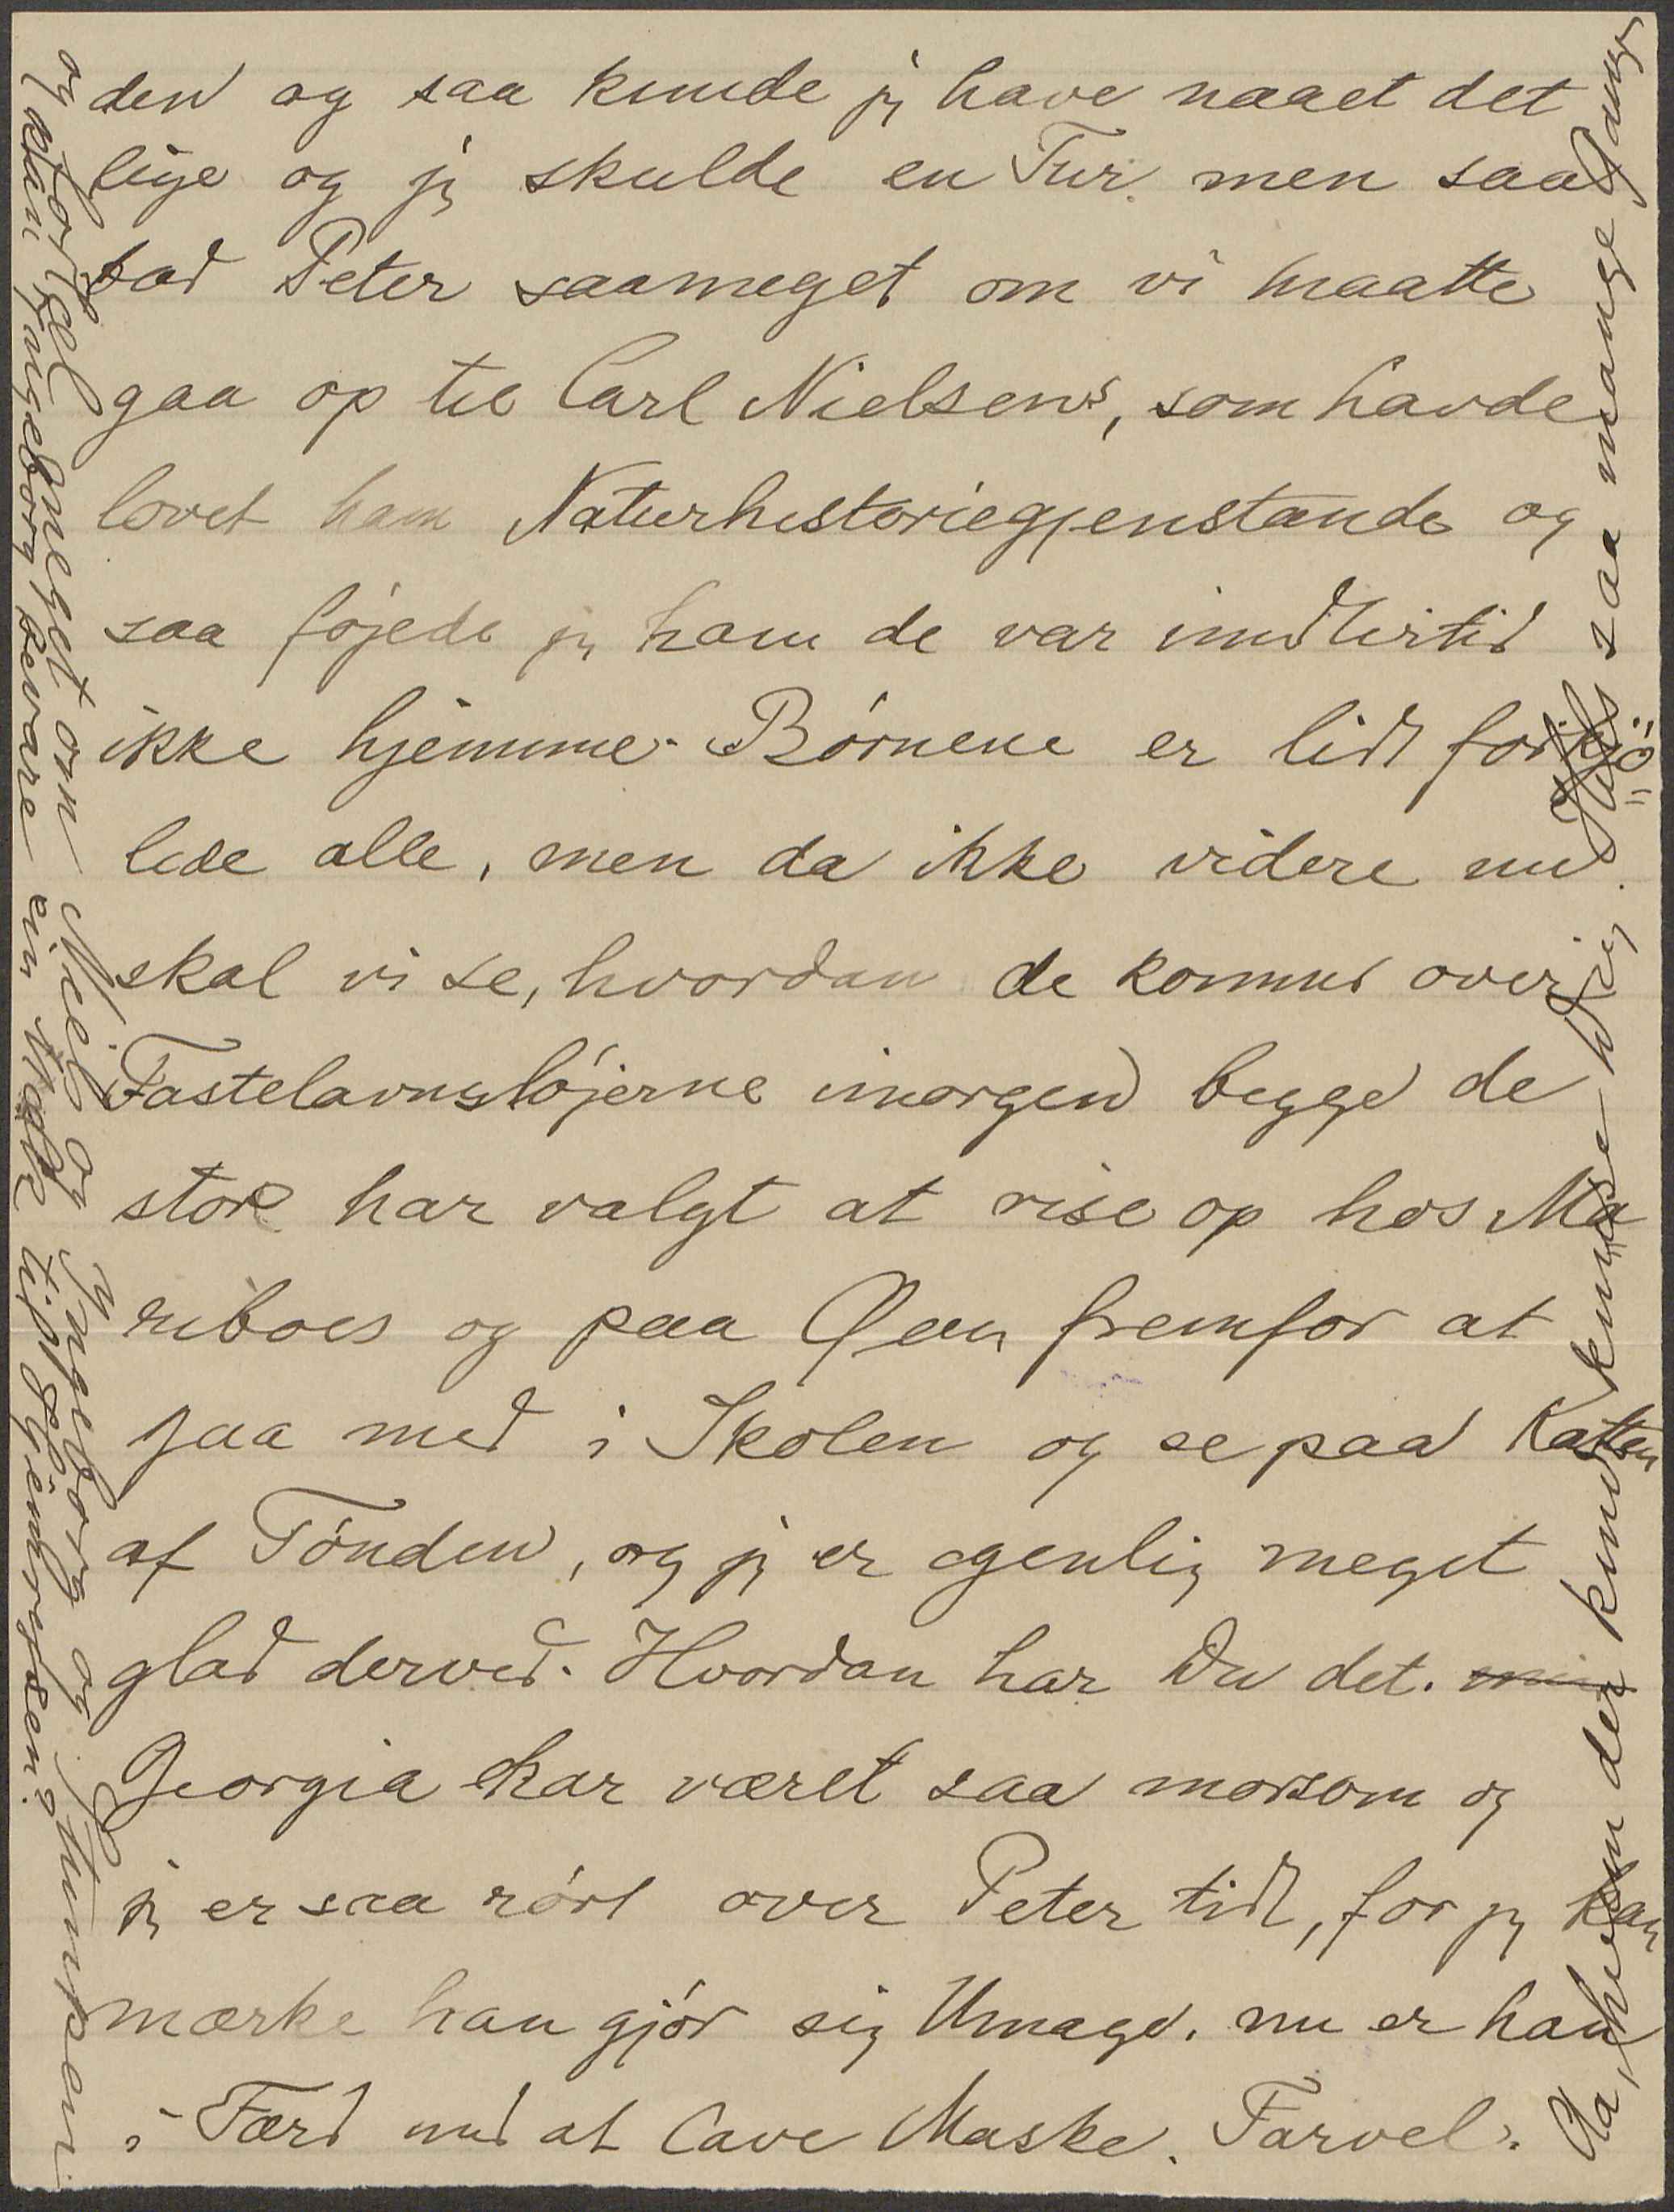 den og saa kunde jeg have naaet det
lige og jeg skulde en Tur. men saa
bad Peter saameget om vi maatte
gaa op til Carl Nielsens, som havde
lovet ham Naturhistoriegjenstande og
saa føjede jeg ham de var imidlertid
ikke hjemme. Børnene er lidt forkjö=
lede alle, men da ikke videre nu
skal vi se, hvordan de kommer over
Fastelavnsløjerne imorgen begge de
store har valgt at rise op hos Ma
riboes og paa Øen fremfor at
gaa med i Skolen og se paa Katten
af Tönden, og jeg er egenlig meget
glad derved. Hvordan har Du det.
Georgia har været saa morsom og
jeg er saa rört over Peter tidt, for jeg kan
mærke han gjör sig Umage. nu er han
i Færd med at lave Maske. Farvel.
Aa, hvem der kunde kunde Dig. Hils saa mange Gange
og fortæl meget om Niels og Ingeborg og Mumsen.
og kan Ingeborg bevare sin Mælk til Hjemrejsen?